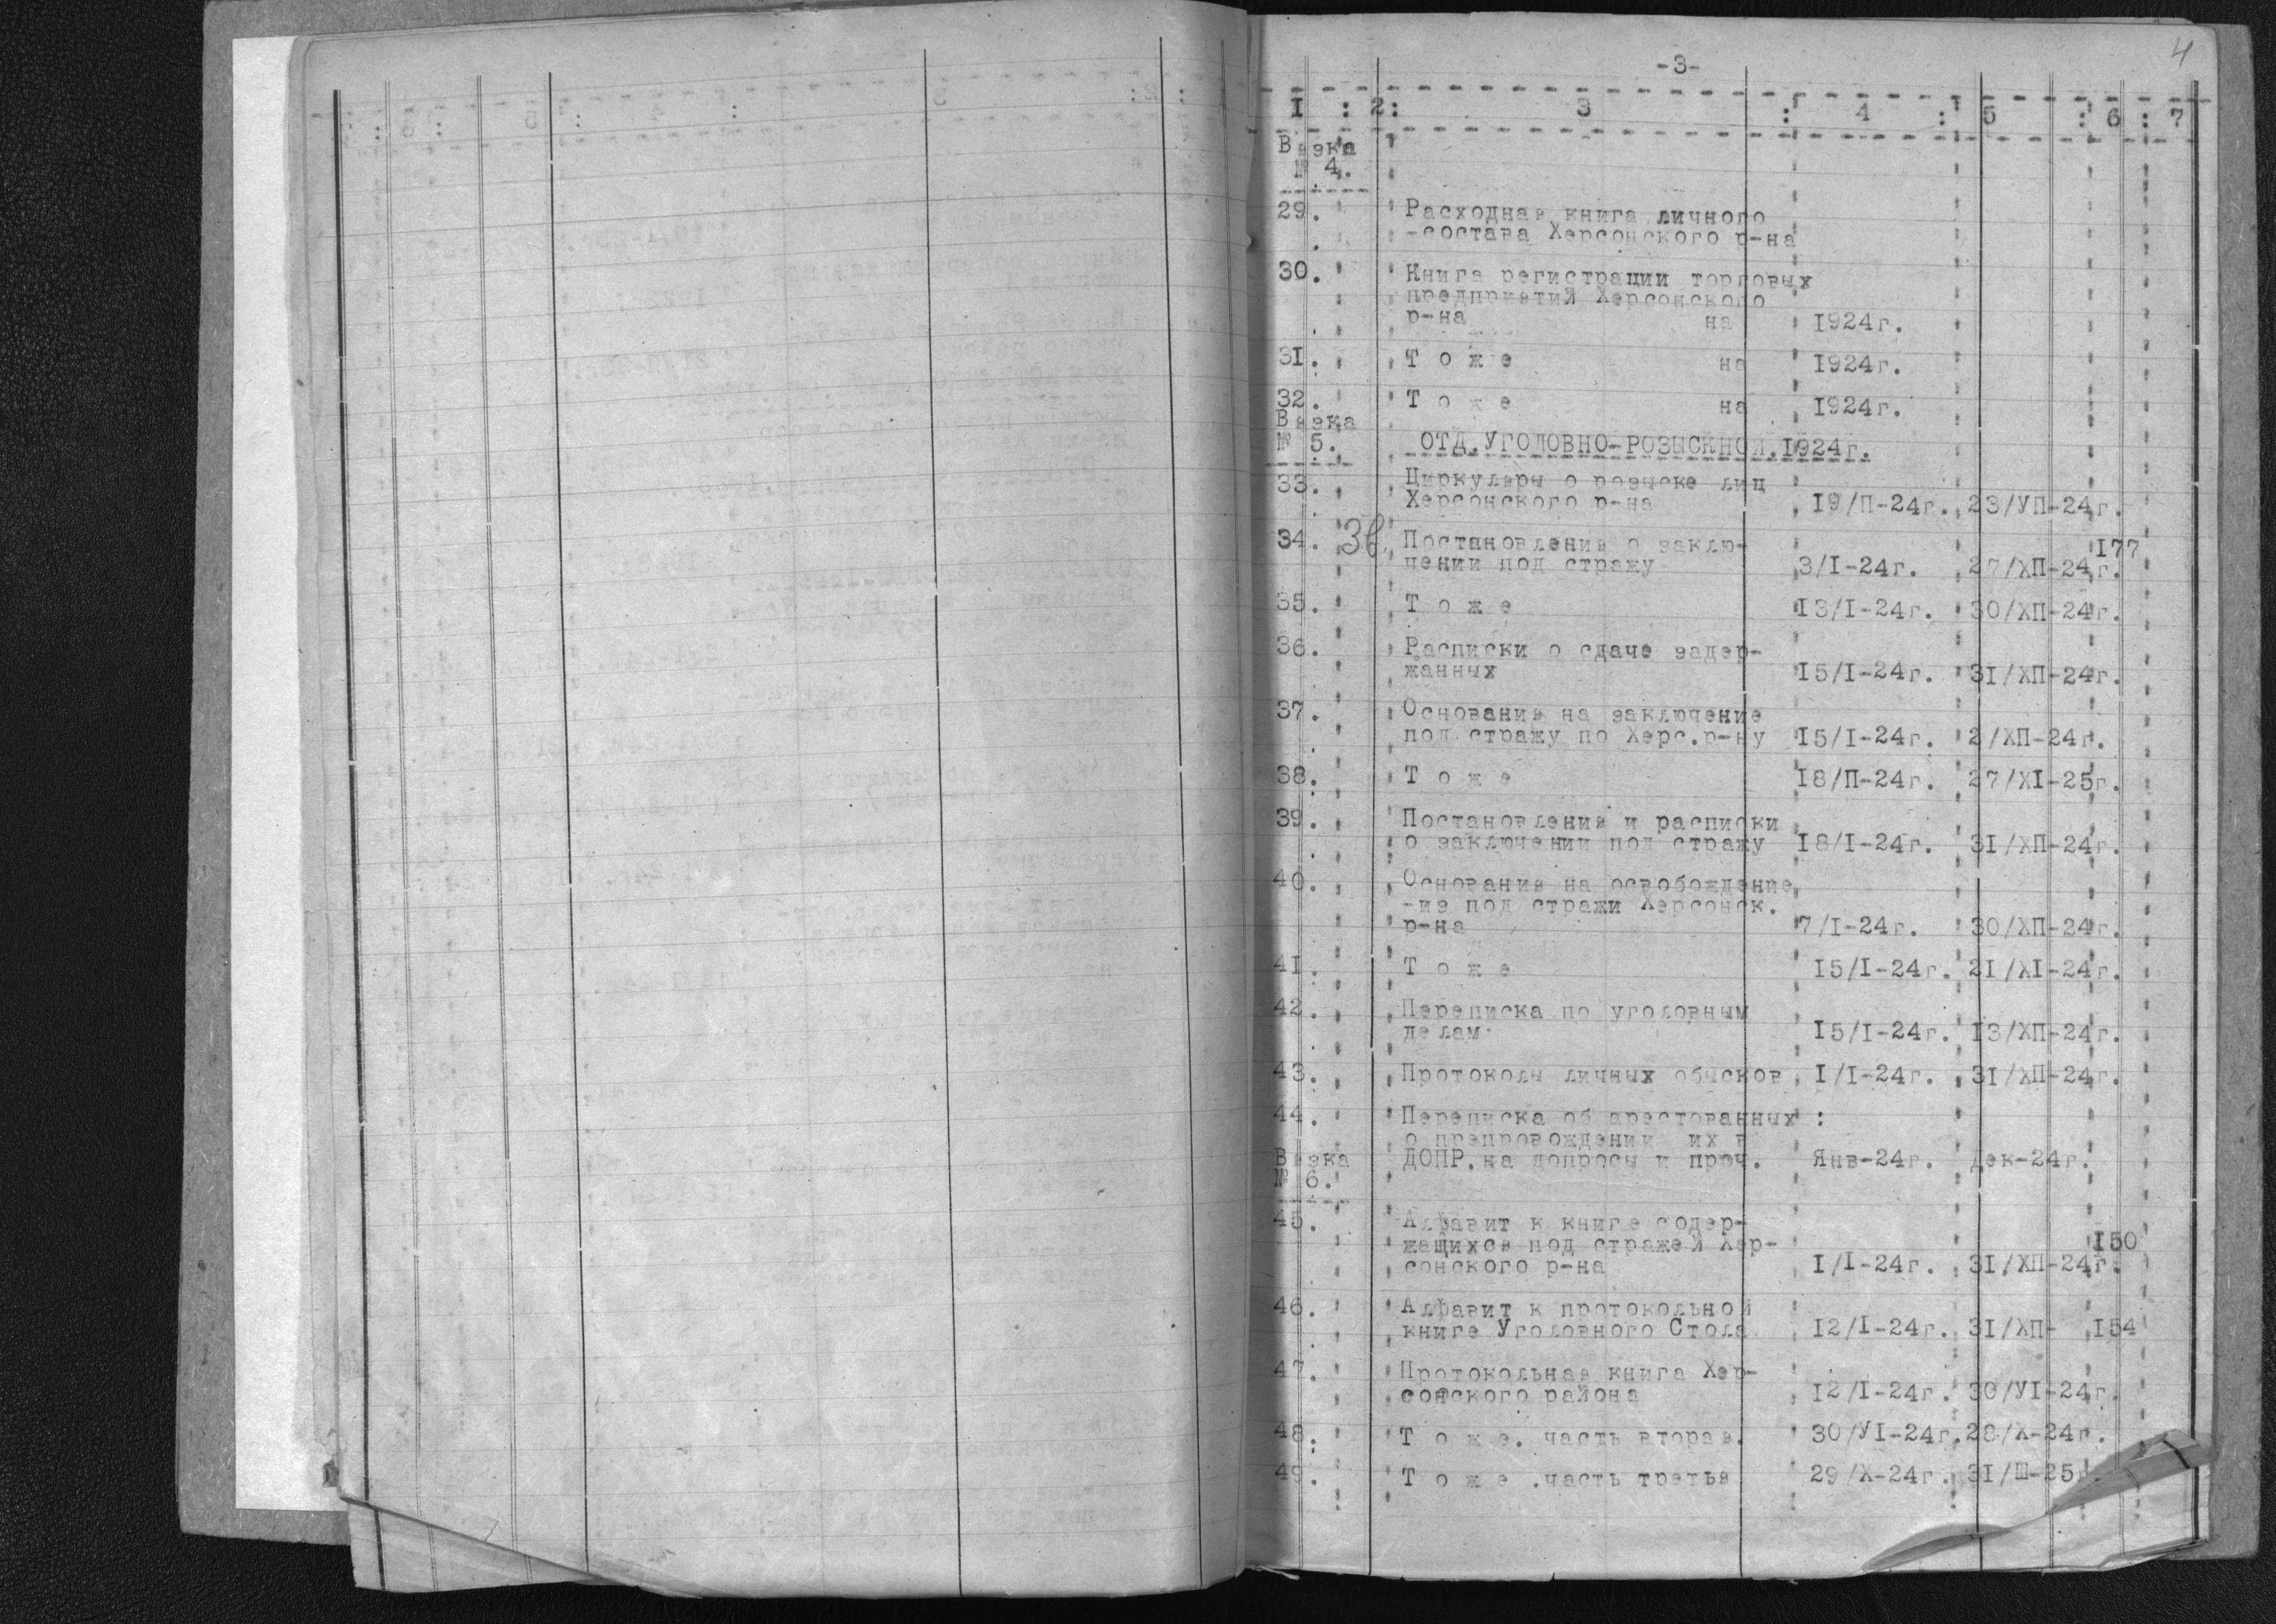 4
-3-
I : 2: 3 : 4 : 5 : 6 : 7
Вязка
№ 4.
29. Расходная книга личного
-состава Херсонского р-на
30. Книга регистрации торговых
предприятий Херсонского
р-на на 1924г.
31. Т о ж е на 1924г.
32. Т о ж е на 1924г.
Вязка
№ 5. ОТД.УГОЛОВНО-РОЗЫСКНОЙ.1924г.
33. Циркуляры о розыске лиц
Херсонского р-на 19/П-24г. 23/УП-24г.
34. 36. Постановления о заклю-
чении под стражу 3/I-24г. 27/ХП-24г. 177
35. Т о ж е 13/I-24г. 30/ХП-24г.
36. Расписки о сдаче задер-
жанных 15/I-24г. 31/ХП-24г.
37. Основание на заключение
под стражу по Херс.р-ну 15/I-24г. 2/ХП-24г.
38. Т о ж е 18/П-24г. 27/ХI-25г.
39. Постановления и расписки
о заключении под стражу 18/I-24г. 31/ХП-24г.
40. Основание на освобождение
-из под стражи Херсонск.
р-на 7/I-24г. 30/ХП-24г.
41. Т о ж е 15/I-24г. 21/ХI-24г.
42. Переписка по уголовным
делам 15/I-24г. 13/ХП-24г.
43. Протоколы личных обысков I/I-24г. 31/ХП-24г.
44. Переписка об арестованных :
о препровождении их в
Вязка ДОПР.на допросы и проч. Янв-24г. Дек-24г.
№ 6.
45. Алфавит к книге содер-
жащихся под стражей Хер-
сонского р-на I/I-24г. 31/ХП-24г. 150
46. Алфавит к протокольной
книге Уголовного Стола 12/I-24г. 31/ХП- 154
47. Протокольная книга Хер-
сонского района 12/I-24г. 30/УI-24г.
48. Т о ж е. часть вторая. 30/УI-24г. 28/Х-24г.
49. Т о ж е .часть третья 29/Х-24г. 31/Ш-25г.